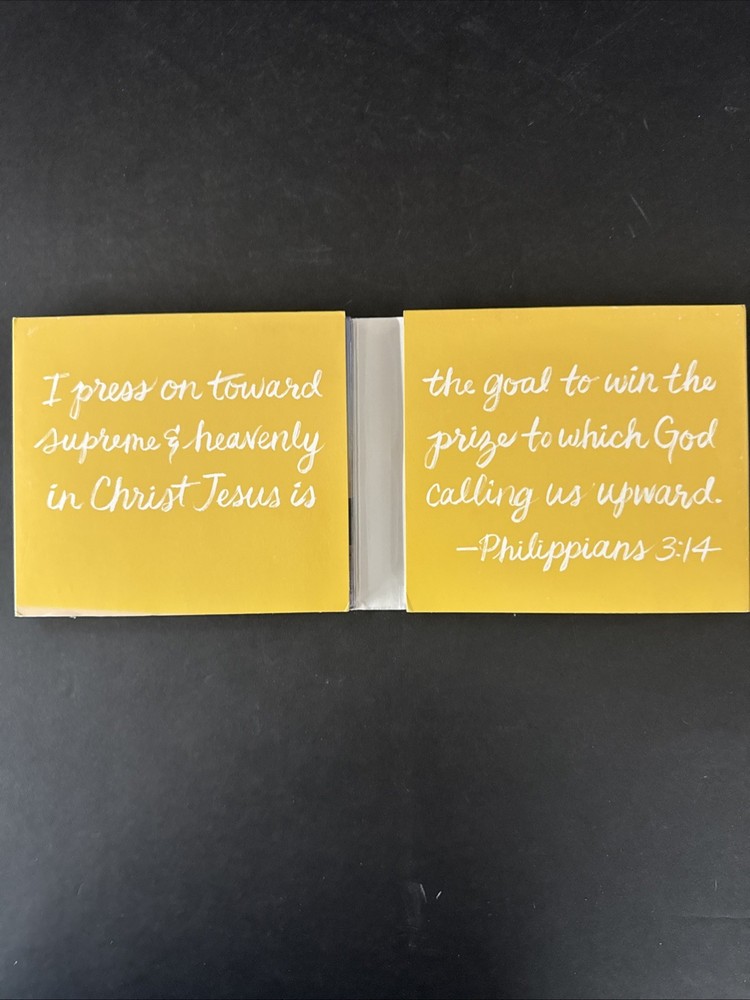 I press on toward
supreme & heavenly
in Christ Jesus is
the goal to win the
prize to which God
calling us upward.
—Philippians 3:14